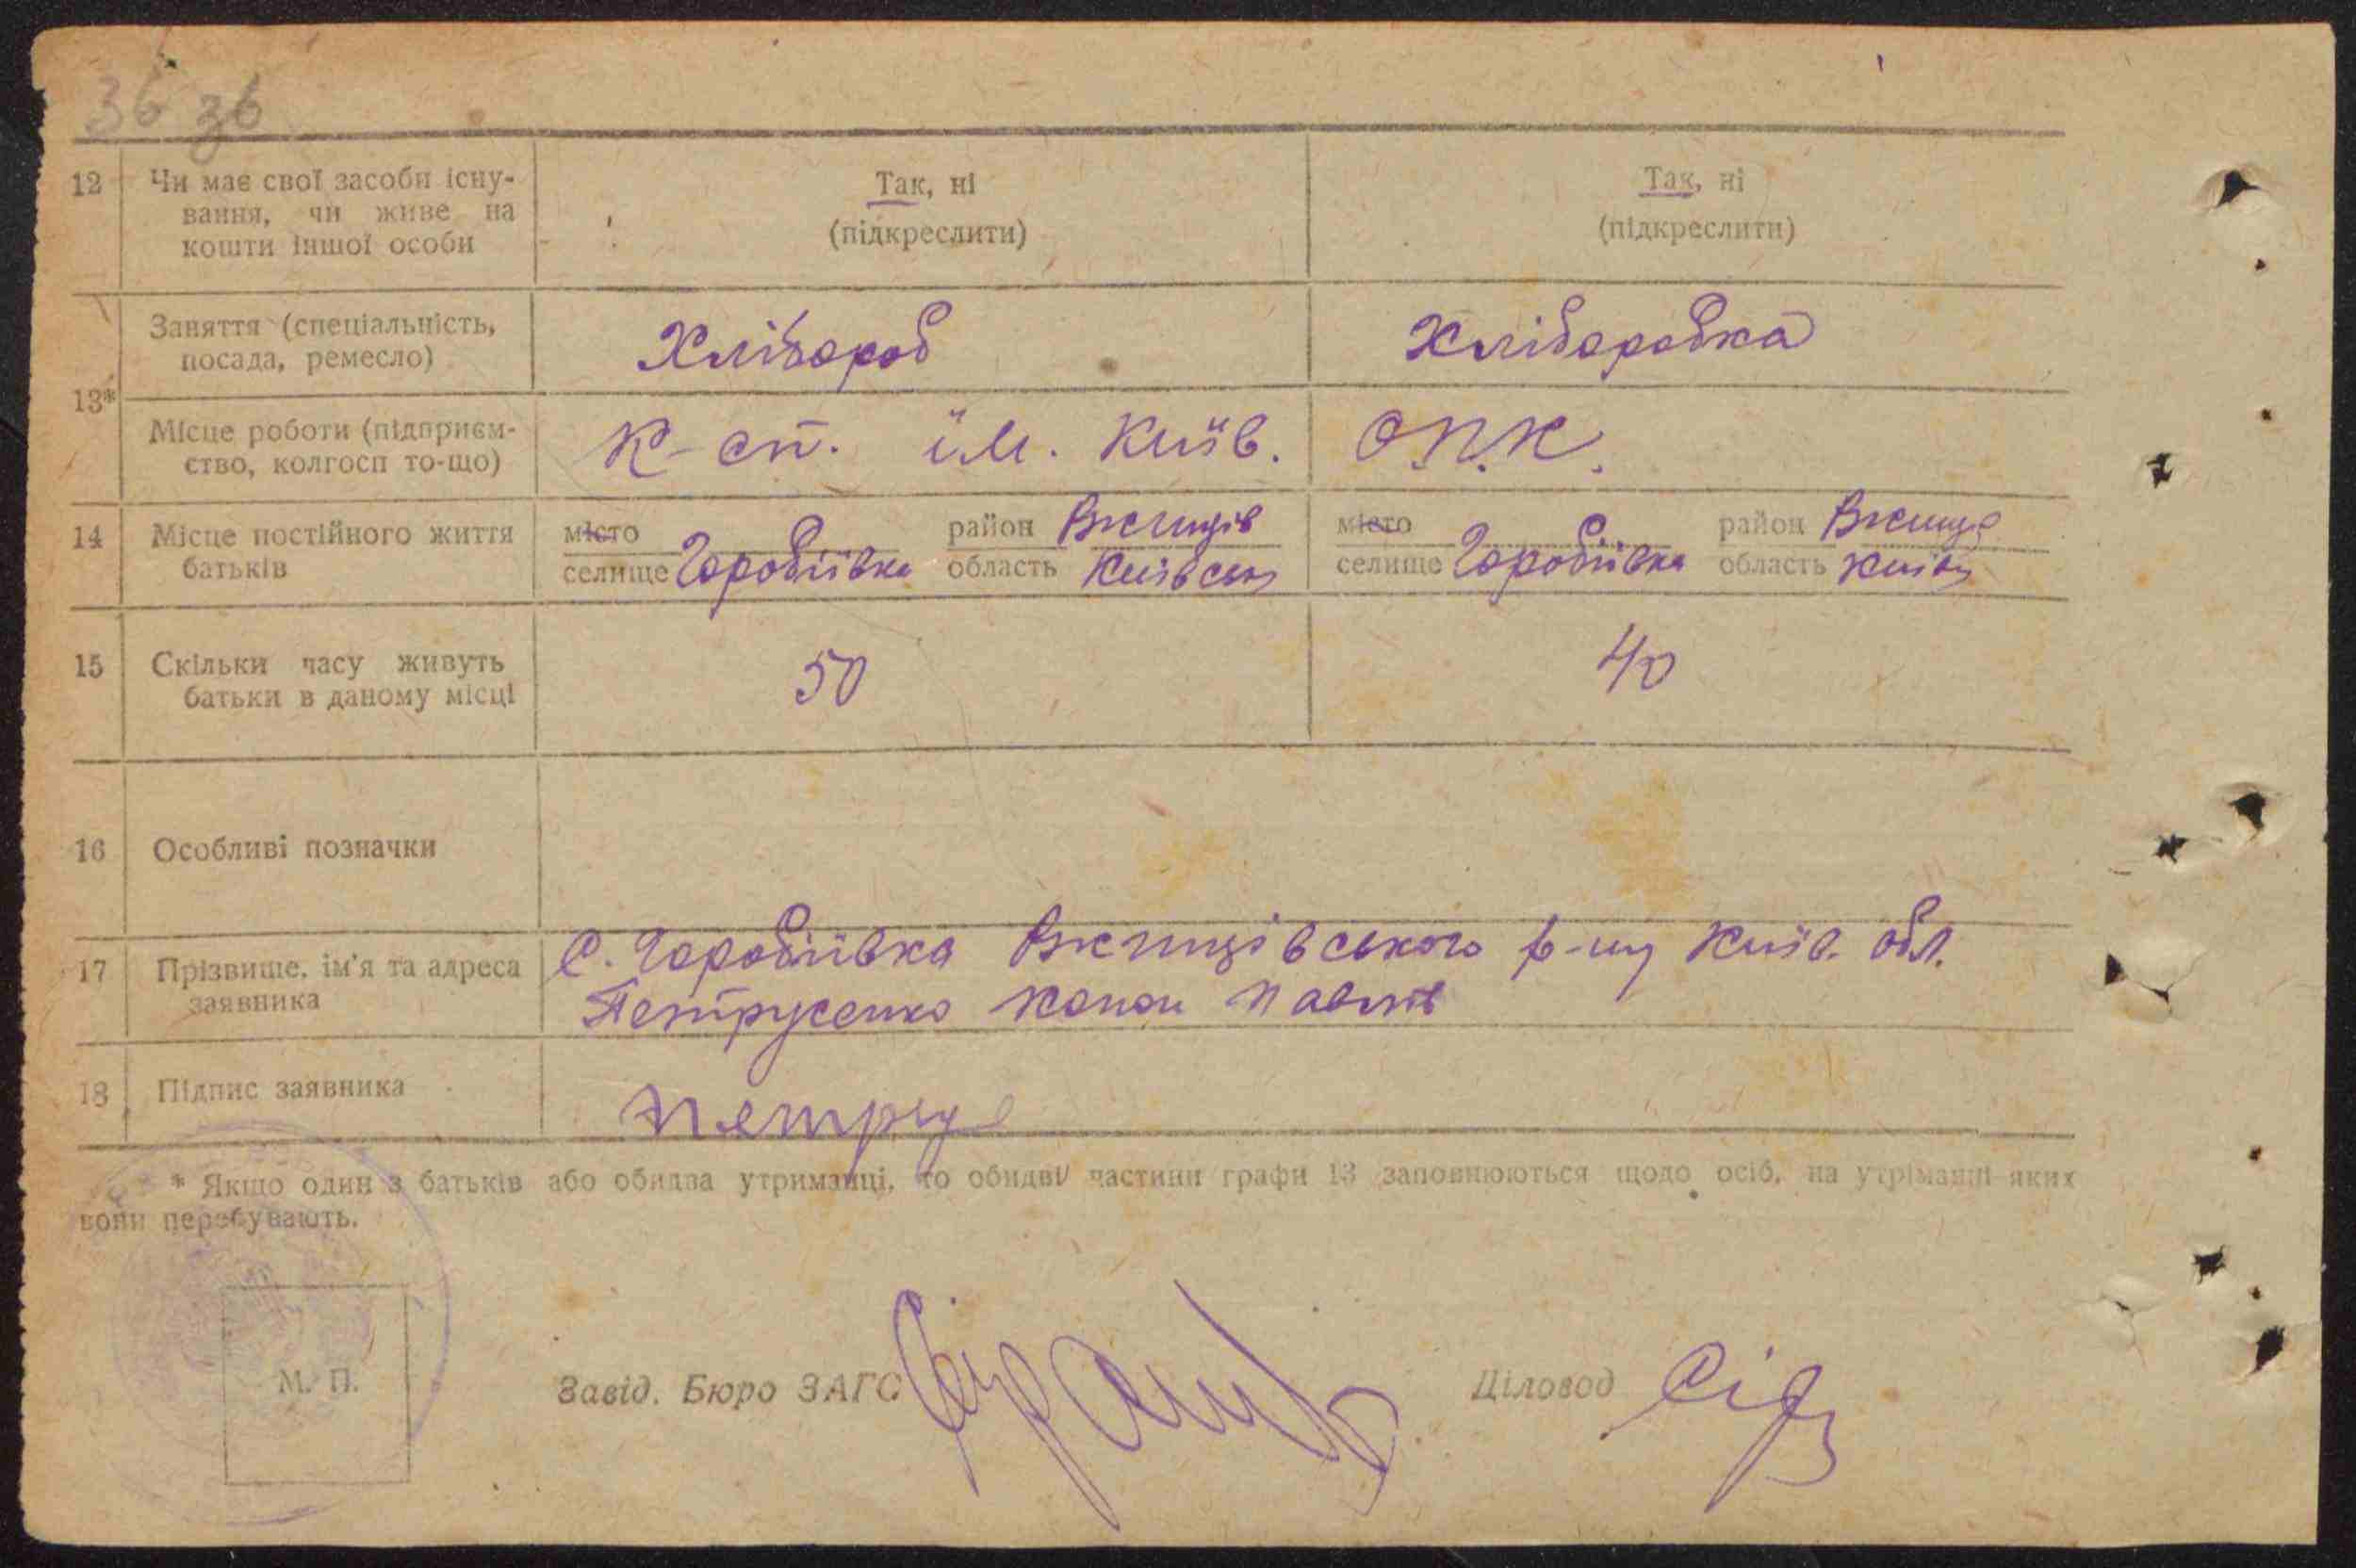 36 зв
12 Чи має свої засоби існу-
вання, чи живе на
кошти іншої особи
Так, ні
(підкреслити)
Так, ні
(підкреслити)
13*
Заняття (спеціальність,
посада, ремесло)
Хлібороб
Хліборобка
Місце роботи (підприєм-
ство, колгосп то-що)
К-сп. ім. Київ.
О.П.К.
14 Місце постійного життя
батьків
місто
селище Горобіївка
район Ржищів
область Київськ
місто
селище Горобіївка
район Ржище
область Київ
15 Скільки часу живуть
батьки в даному місці
50
40
16 Особливі позначки
17 Прізвище, ім'я та адреса
заявника
С. Горобіївка Ржищівського р-ну Київ. обл.
Петрусенко Конон Павлів
18 Підпис заявника
Петрусе
* Якщо один з батьків або обидва утриманці, то обидві частини графи 13 заповнюються щодо осіб, на утріманні яких
вони перебувають.
М. П.
Завід. Бюро ЗАГС
Діловод